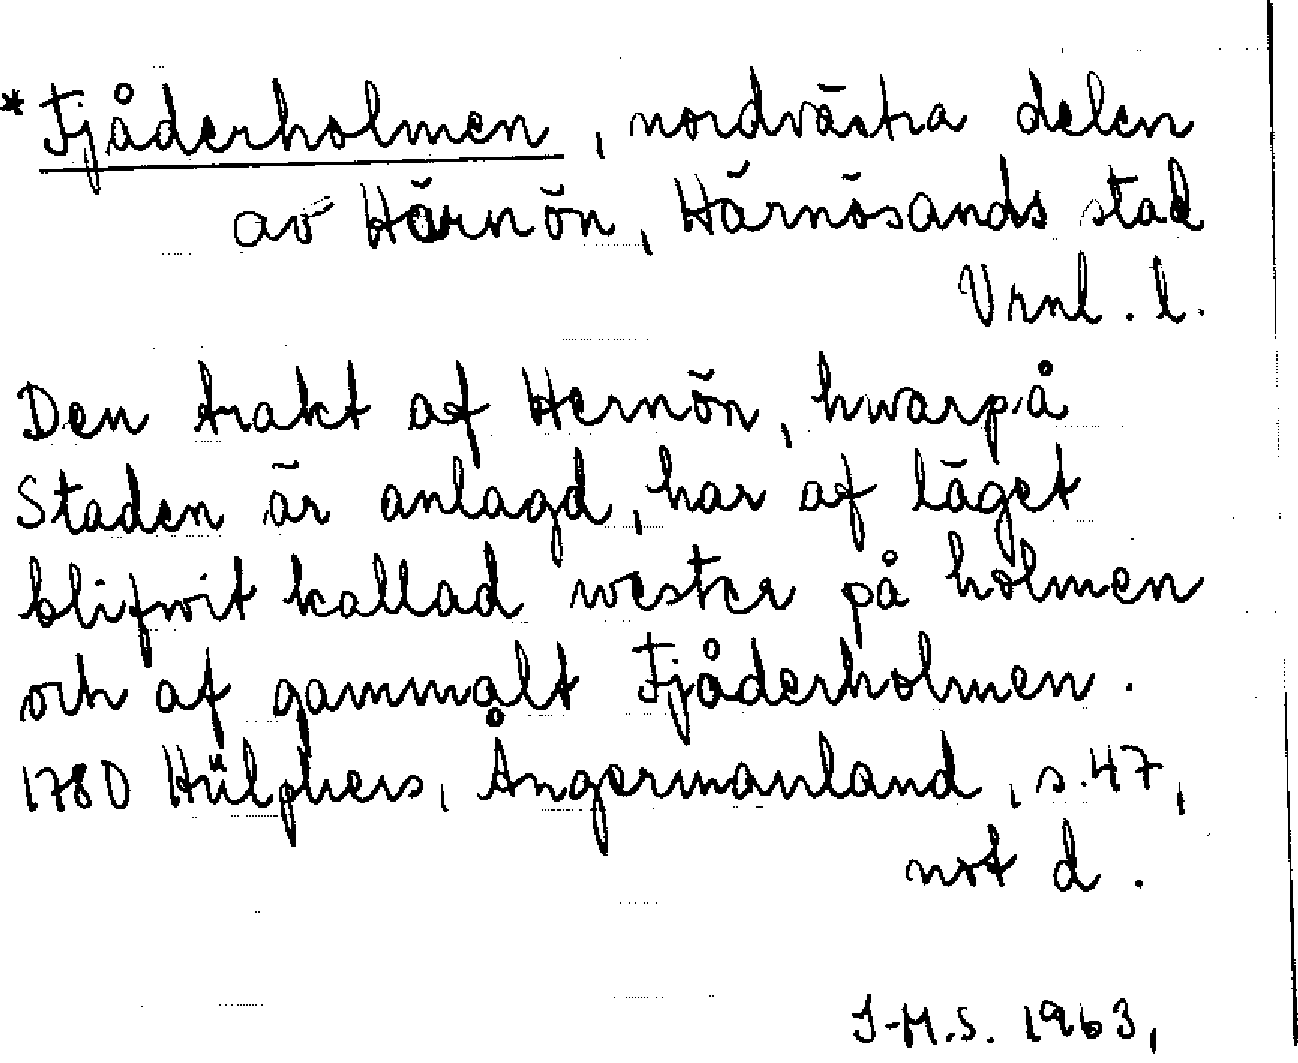 *Fjåderholmen, nordvästra delen
av Härnön, Härnösands stad
Vrnl. l.
Den trakt af Hernön, hwarpå
Staden är anlagd, har af läget
blifwit kallad wester på holmen
och af gammalt Fjåderholmen.
1780 Hülphers, Ångermanland, s. 47,
not d.
J-M.S. 1963,